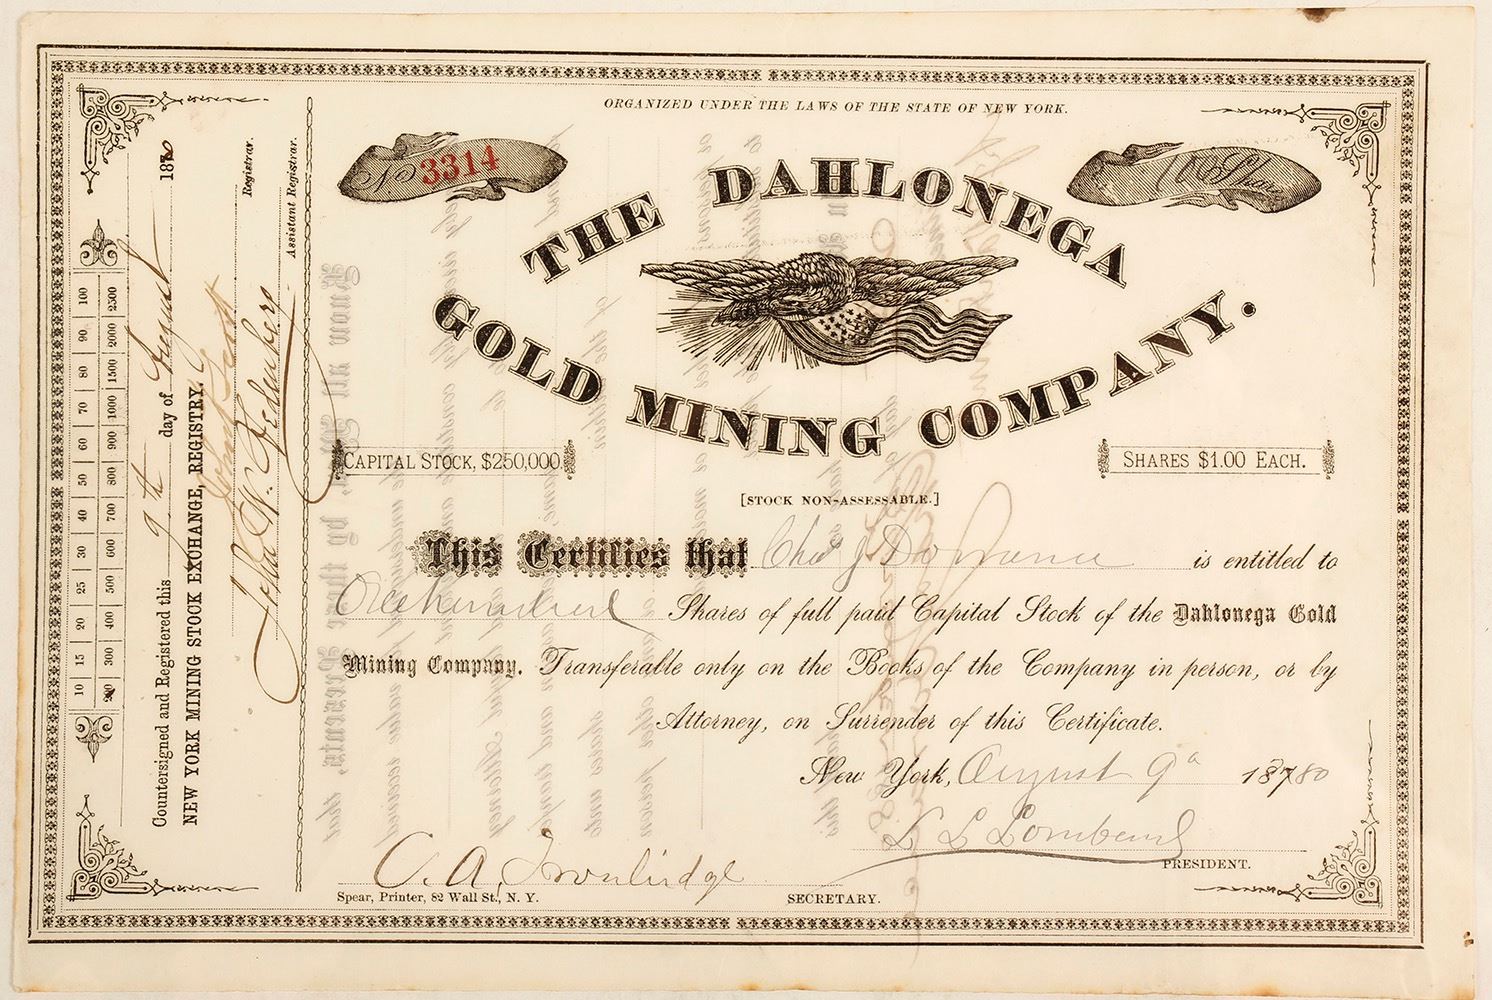 ORGANIZED UNDER THE LAWS OF THE STATE OF NEW YORK.
No 3314
100 Shares
THE DAHLONEGA
GOLD MINING COMPANY.
CAPITAL STOCK, $250,000
SHARES $1.00 EACH.
[STOCK NON-ASSESSABLE.]
This Certifies that Chas J is entitled to
One hundred Shares of full paid Capital Stock of the Dahlonega Gold
Mining Company. Transferable only on the Books of the Company in person, or by
Attorney, on Surrender of this Certificate.
New York, August 9th 18780
L L Lombard
PRESIDENT.
C. A.
Spear, Printer, 82 Wall St., N. Y.
SECRETARY.
Countersigned and Registered this 9th day of August 18
NEW YORK MINING STOCK EXCHANGE, REGISTRY.
Registrar.
John W.
Assistant Registrar.
10 15 20 25 30 40 50 60 70 80 90 100
200 300 400 500 600 700 800 900 1000 1500 2000 2500